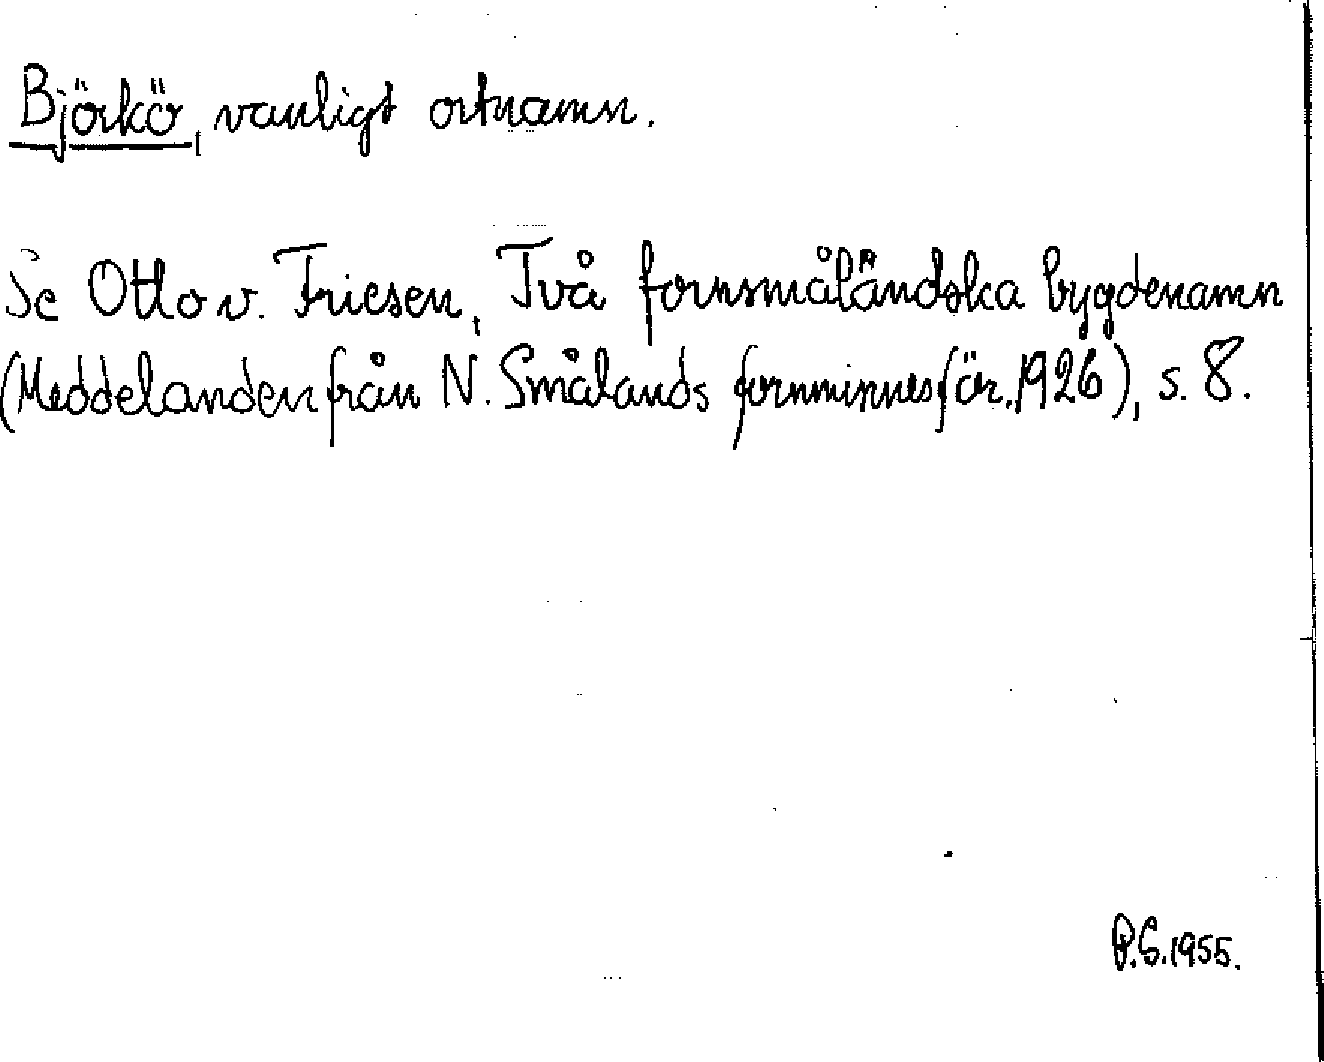 Björkö, vanligt ortnamn.
Se Otto v. Friesen, Två fornsmåländska bygdenamn
(Meddelanden från N. Smålands fornminnesför. 1926), s. 8.
P.S. 1955.